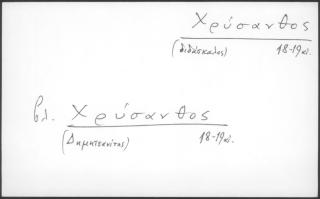 Χρύσανθος
(διδάσκαλος) 18-19 αι.
βλ. Χρύσανθος
(Δημητσανίτης) 18-19 αι.